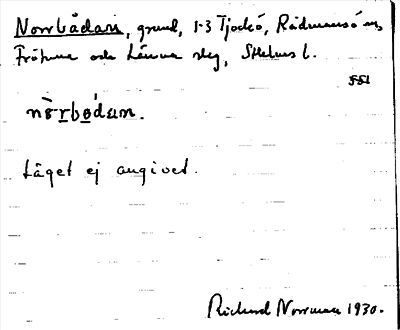 Norrbådan, grund, 1-3 Tjockö, Rådmansö sn,
Frötuna och Länna slg, Sthlms l.
551
nȯ̀rbo̤dan.
Läget ej angivet.
Rickard Norrman 1930.